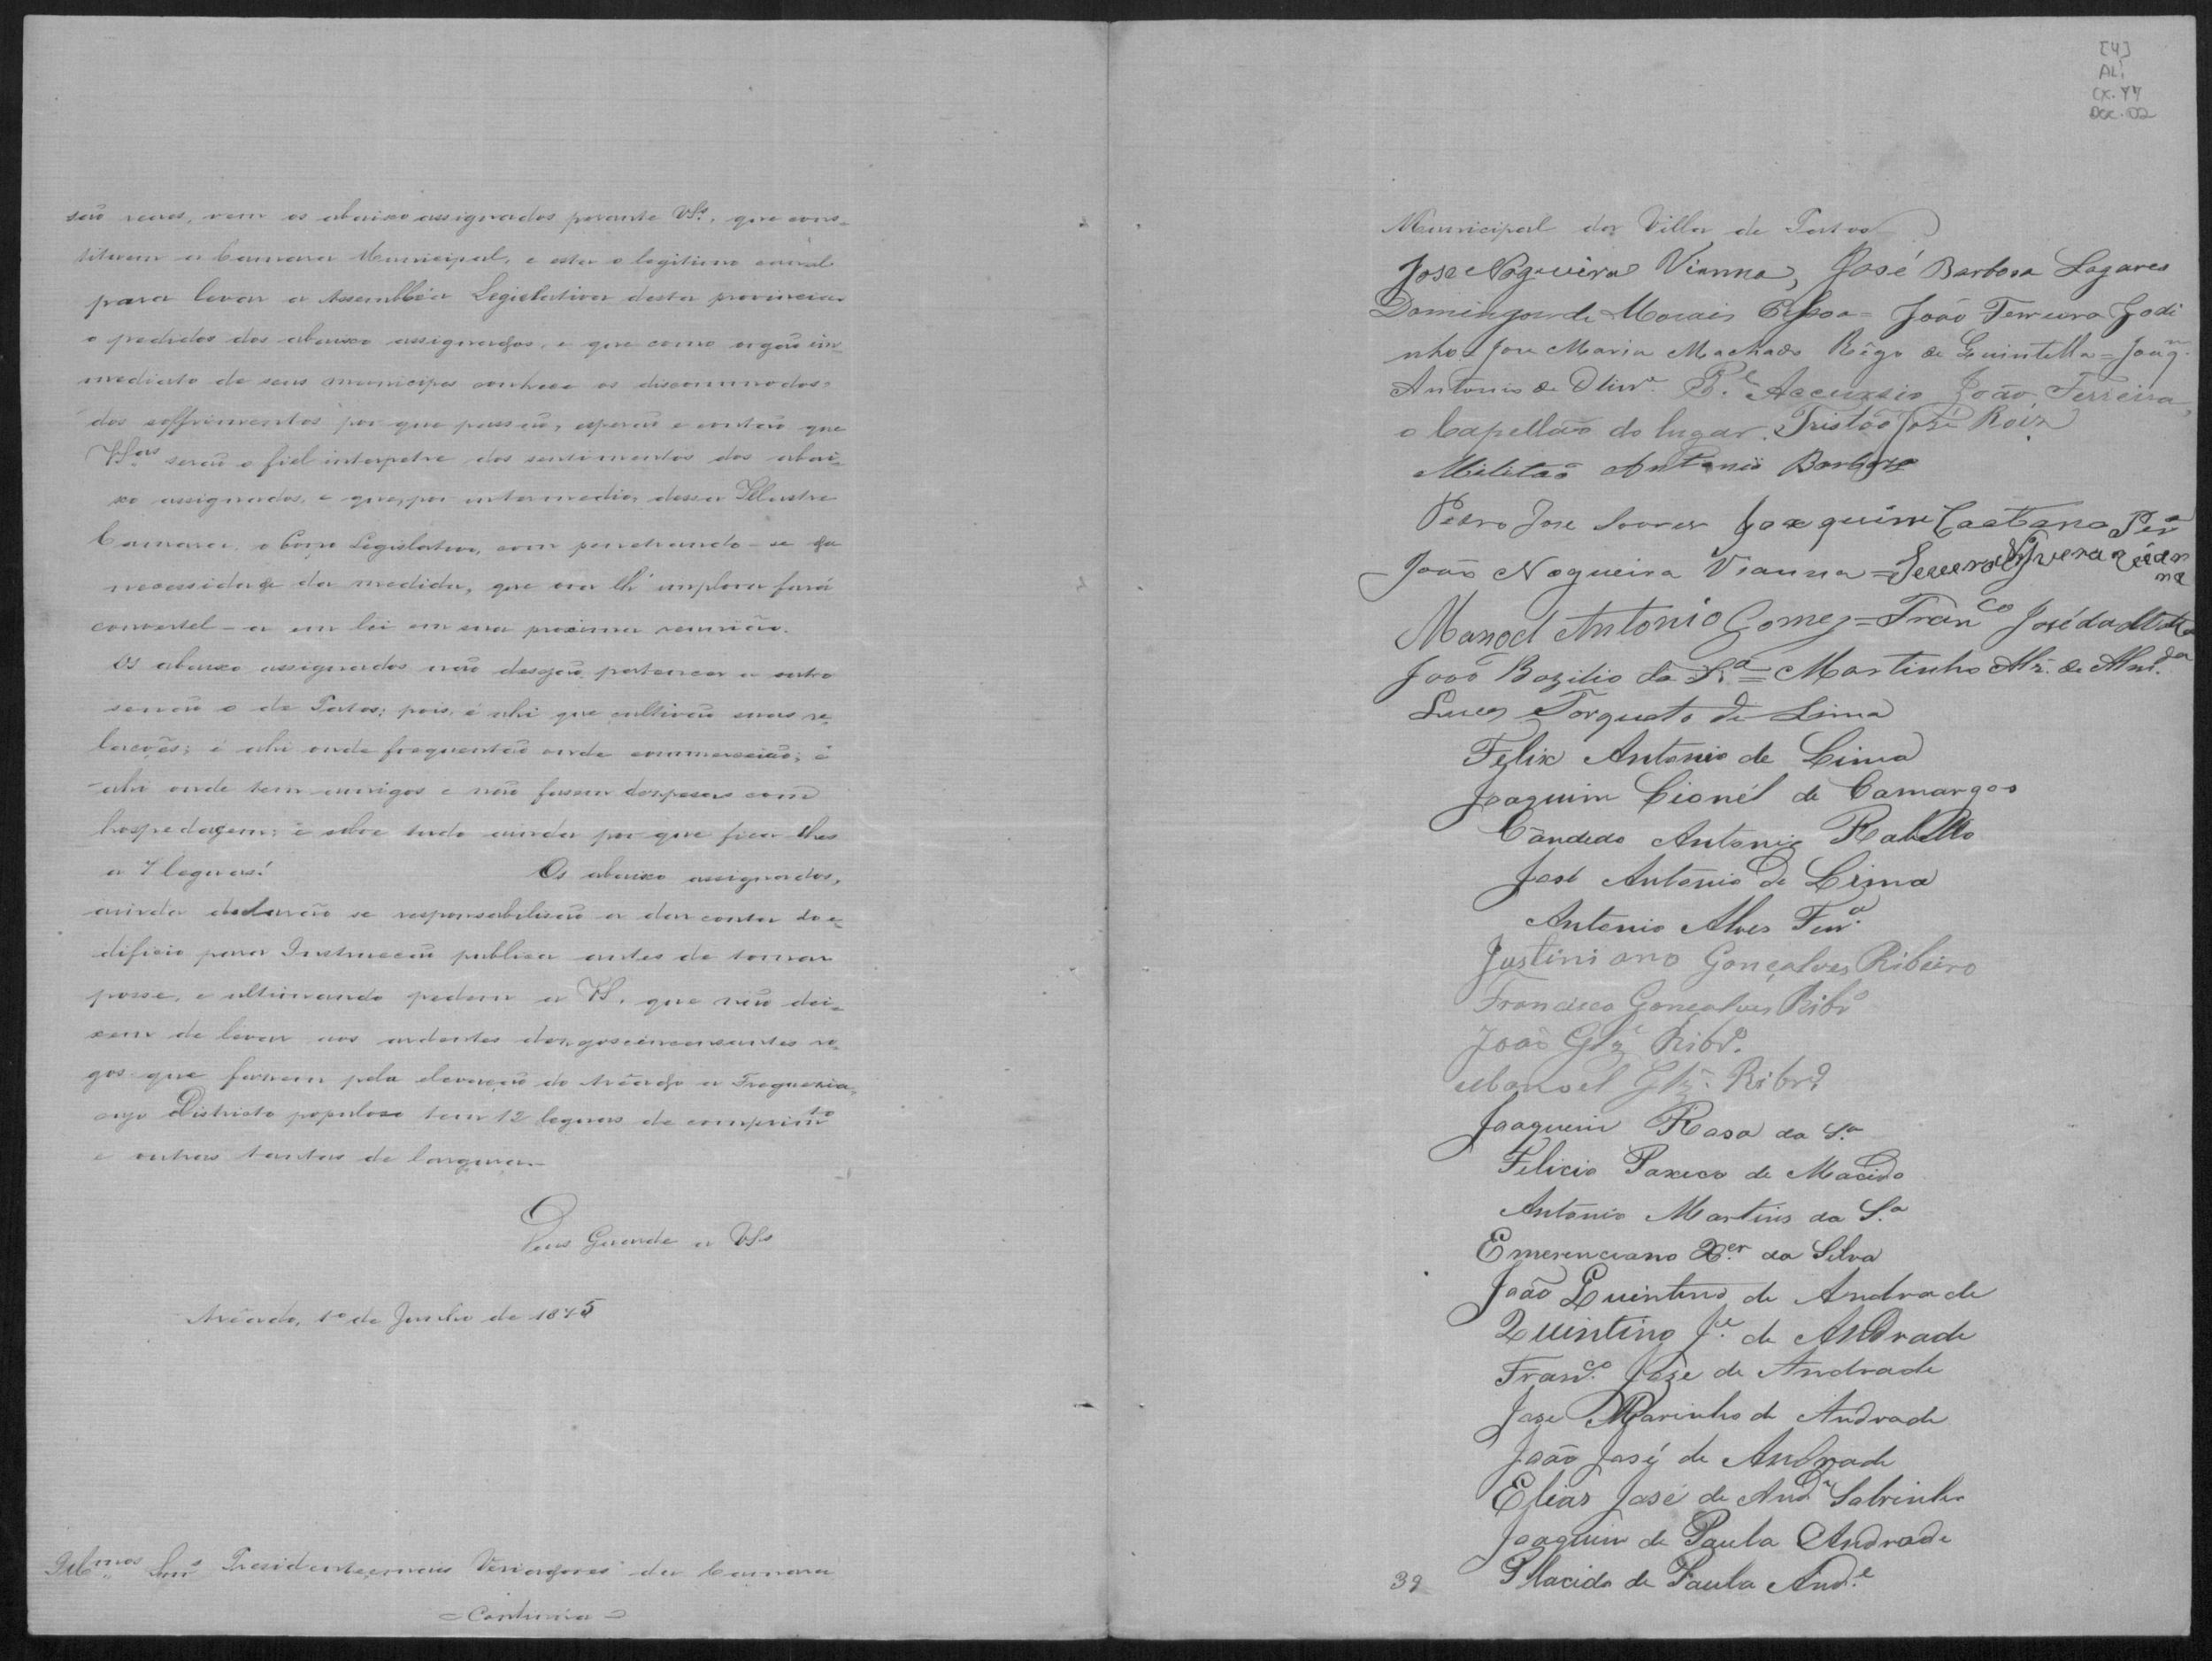 são vexes, vem os abaixo assignados perante VSs. que cons-
tituem a Camara Municipal, e esta o legitimo canal
para levar a Assembléa Legislativa desta provincia
o pedidos dos abaixo assignados, e que como orgaõ im-
mediato de seus municipes conhece os discommodos,
dos soffrimentos por que passaõ, esperaõ e contaõ que
VSas seraõ o fiel interpetre dos sentimentos dos abai-
xo assignados, e que, por intermedio, dessa Illustre
Camara, o Corpo Legislativo, com penetrando-se da
necessidade da medida, que ora lh' implora fará
convertel-a em lei em sua proxima reunião.
Os abaixo assignados naõ desejaõ pertencer a outro
senaõ o de Patos; pois, é ahi que cultivaõ suas re-
lacoẽs; é ahi onde frequentaõ onde commerceiaõ; é
ahi onde tem amigos e naõ fasem despesas com
hospedagem; e sobre tudo ainda por que fica lhes
a 7 legoas! Os abaixo assignados,
ainda declaraõ se responsabilisaõ a dar conta do e-
dificio para Instrucçaõ publica antes de tomar
posse, e ultimando pedem a VS. que naõ dei-
xem de levar aos ardentes incensantes ro-
gos que fasem pela elevaçaõ do Arêado a Freguezia,
cujo Districto populoso tem 12 legoas de comprimto
e outras tantas de largura.
Deus Guarde a VSs
Arêado, 1º de Junho de 1875
Illmos Snrs Presidente e mais Veriadores da Camara
= Continúa =
[4]
ALI
CX. 44
DOC. 02
Municipal da Villa de Patos
Jose Nogueira Vianna, José Barbosa Lagares
Domingos de Morais Pessoa = João Ferreira Godi
nho = Jose Maria Machado Rêgo de Quintella = Joaqm.
Antonio de Olivra. Pe. Accursio João Ferreira,
o Capellaõ do lugar. Tristaõ José Roiz
Militaõ Antonio Barboza
Pedro Jose Soares Joaquim Caetano Pera
João Nogueira Vianna =
Manoel Antonio Gomes = Franco José da
João Bazilio da Sa = Martinho Alz. de Almda
Lucas Torquato de Lima
Felix Antonio de Lima
Joaquim Lionél de Camargos
Cândido Antonio Rabello
José Antonio de Lima
Antonio Alves Ferra.
Justiniano Gonçalves Ribeiro
Francisco Gonçalves Ribro
João Glz Ribro.
Manoel Glz. Ribro
Joaquim Rosa da Sa
Felicio Paxeco de Macêdo
Antonio Martins da Sa
Emerenciano Xer. da Silva
João Quintino de Andrade
Quintino Je. de Andrade
Franco. Joze de Andrade
Joze Marinho de Andrade
João José de Andrade
Elias José de Andre Sobrinho
Joaquim de Paula Andrade
39 Placido de Paula Ande.